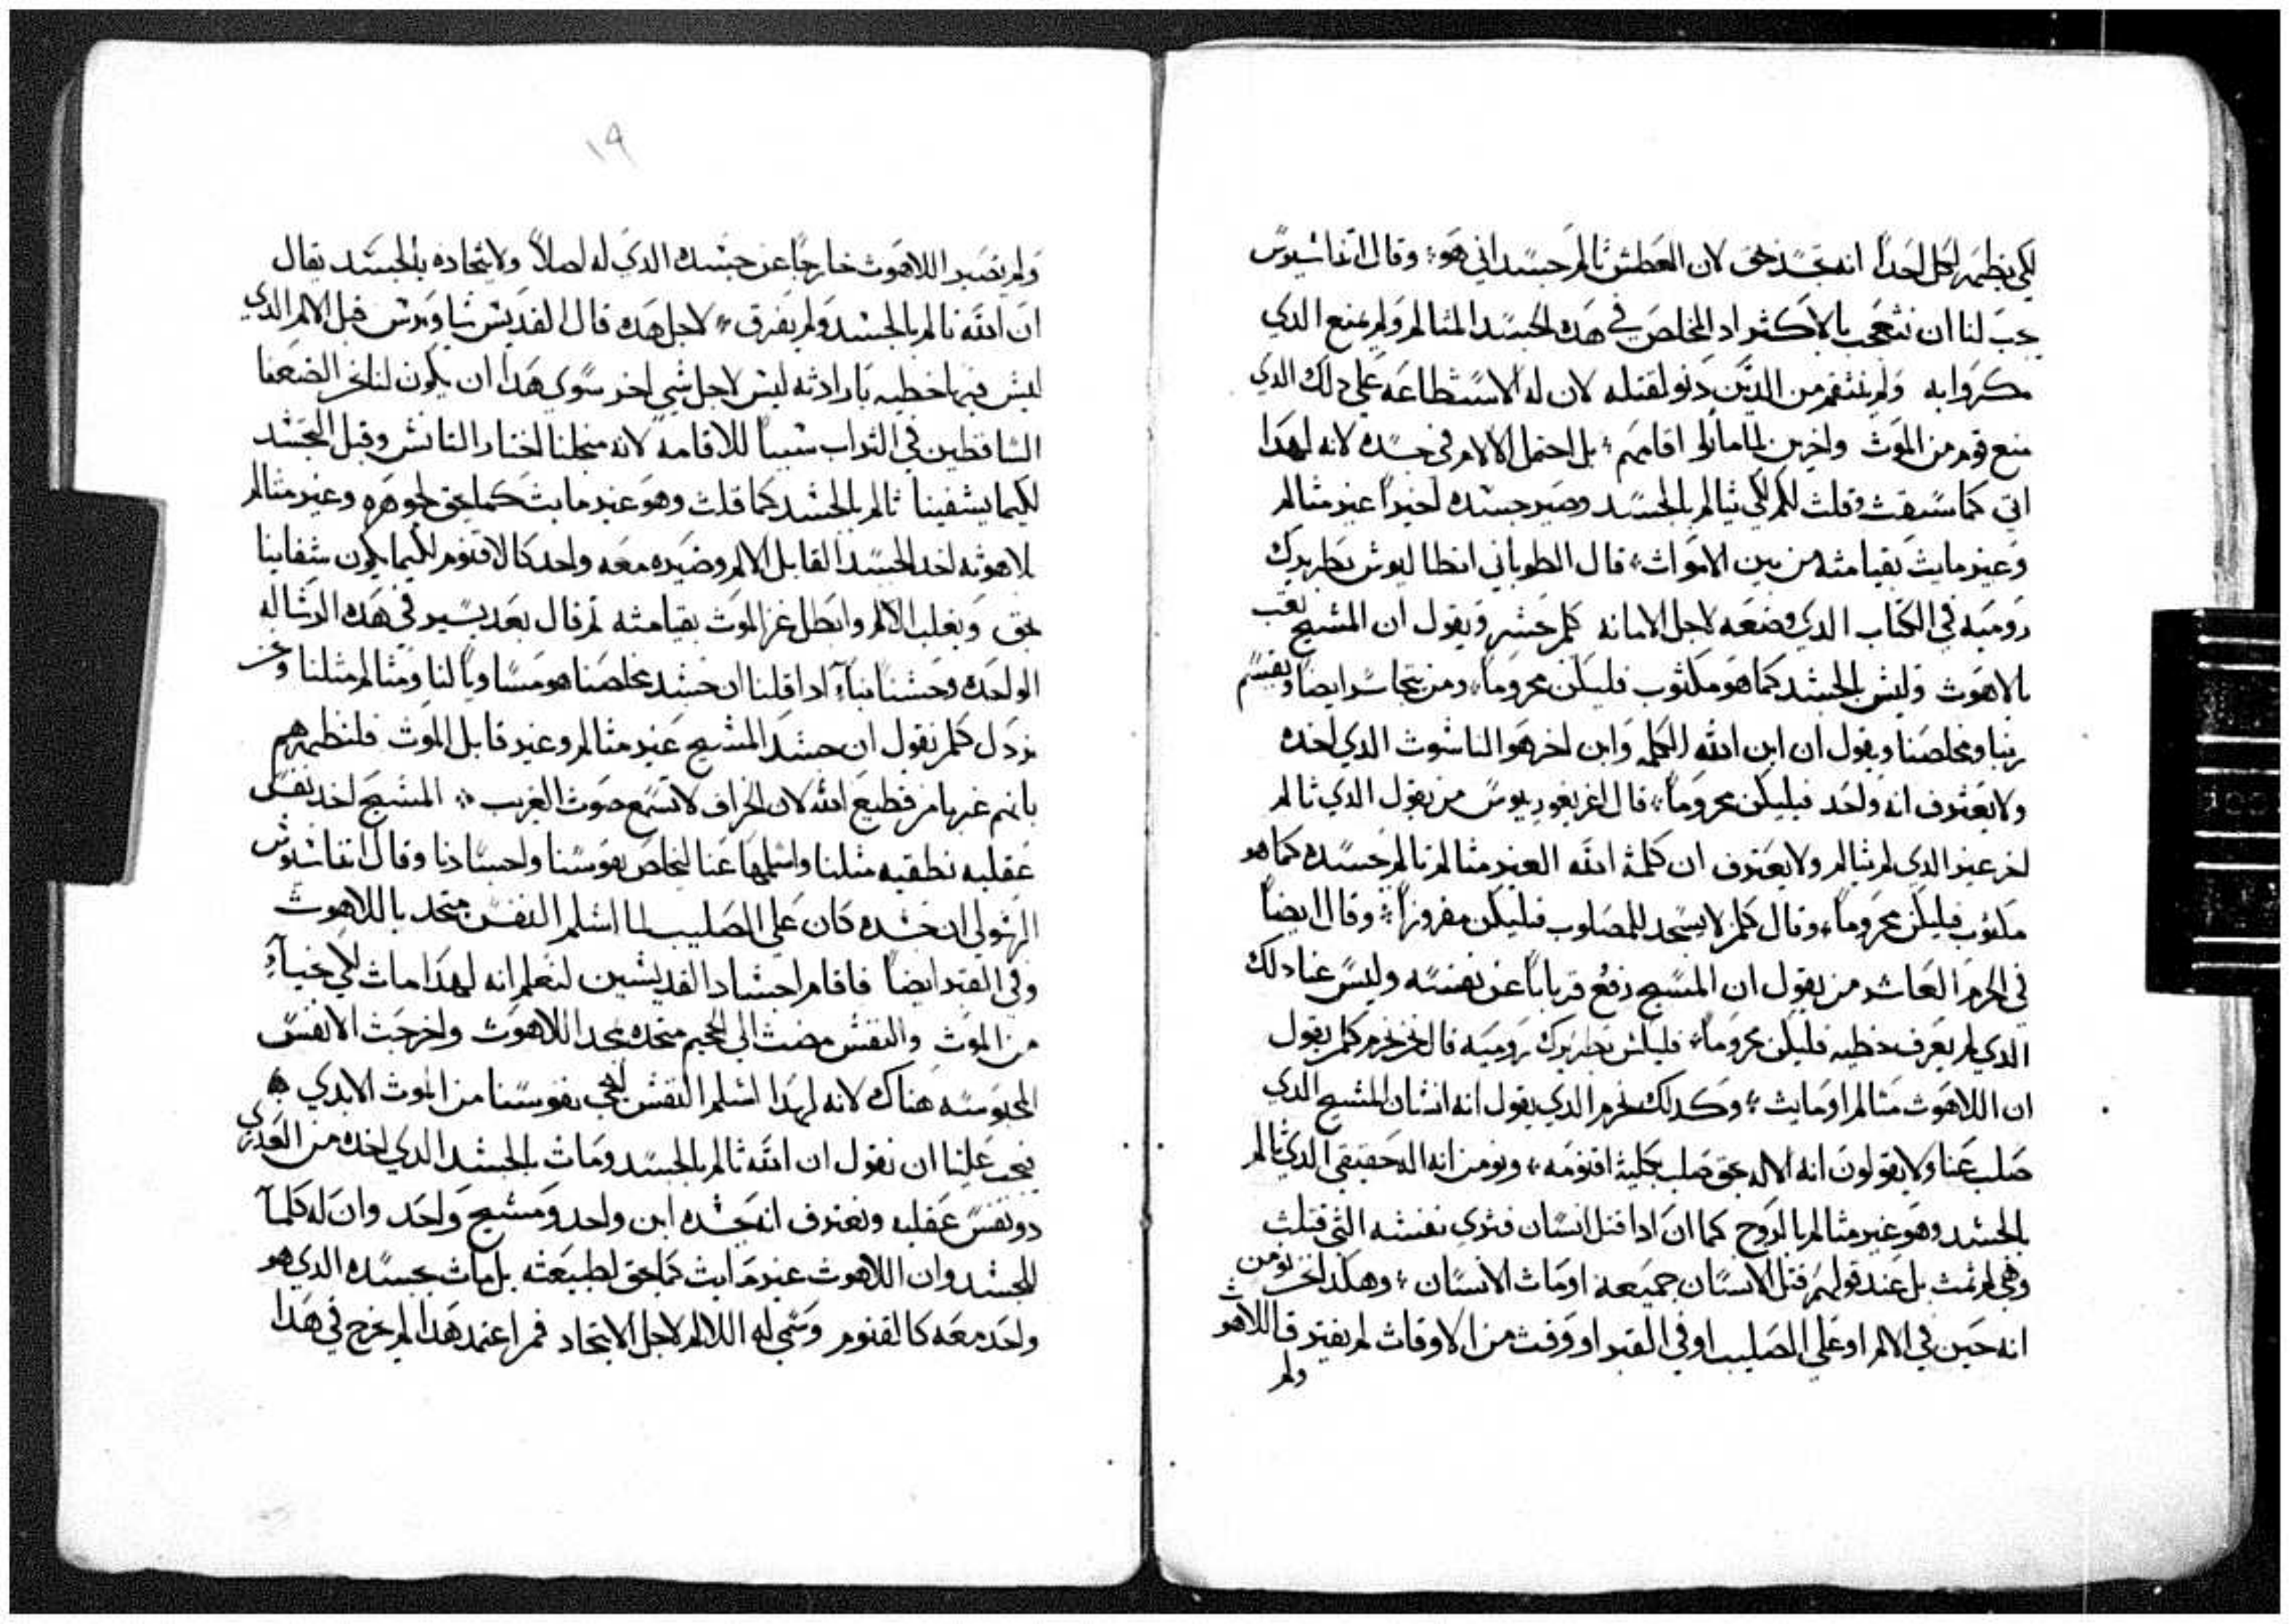 لكي يظهر لكل احدا انه تجسد حق لان العطش تالم جسداني هو؛ وقال اتناسيوس
يجب لنا ان نتعجب بالاكثر اد المخلص في هده الجسد المتالم ولم يمنع الدي
مكروا به ولم ينتقم من الدين دنو لقتله لان له الاستطاعه علي دلك الدي
منع قوم من الموت واخرين لما ماتوا اقامهم؛ بل احتمل الالام في جسده لانه لهدا
اتي كما سبقت وقلت لكم لكي يتالم بالجسد وصير جسده اخيرا غير متالم
وغير مايت بقيامته من بين الاموات؛ قال الطوباني انطاليوس بطريرك
روميه في الكتاب الدي وضعه لاجل الامانه كلمن يجسر ويقول ان المسيح تعب
بالاهوت وليس بالجسد كما هو مكتوب فليكن محروما؛ ومن يتجاسر ايضا ويقسم
ربنا ومخلصنا ويقول ان ابن الله الكلمه وابن اخر هو الناسوت الدي اخده
ولا يعترف انه واحد فيليكن محروما؛ قال اغريغوريوس من يقول الدي تالم
اخر غير الدي لم يتالم ولا يعترف ان كلمة الله الغير متالم تالم جسده كما هو
مكتوب فليكن محروما؛ وقال كلمن لا يسجد للمصلوب فليكن مفروزا؛ وقال ايضا
في الحرم العاشر من يقول ان المسيح رفع قربانا عن نفسه وليس عنا دلك
الدي لم يعرف خطيه فليكن محروما؛ فليكس بطريرك روميه قال نحن نحرم كلمن يقول
ان اللاهوت متالم او مايت؛ وكدلك نحرم الدي يقول انه انسان المسيح الدي
صلب عنا ولا يقولون انه الاله بحق صلب بكلية اقنومه؛ ونومن انه اله حقيقي الدي تالم
بالجسد وهو غير متالم بالروح كما ان ادا قتل انسان فتري نفسه التي قتلت
وهي لم تمت بل عند قولهم قتل الانسان جميعه او مات الانسان؛ وهكدا نحن نومن
انه حين في الالام او علي الصليب او في القبر او وقت من الاوقات لم يفترق اللاهوت
ولم
١٩
ولم نصير اللاهوت خارجا عن جسده الدي له اصلا ولاتحاده بالجسد يقال
ان الله تالم بالجسد ولم يفرق؛ لاجل هده قال القديس ساويرس قبل الالام الدي
ليس فيها خطيه بارادته ليس لاجل شي اخر سوي هدا ان يكون لنا نحن الضعفا
الساقطين في التراب سببا للاقامه لانه من اجلنا اختار التانس وقبل الجسد
لكيما يشفينا تالم بالجسد كما قلت وهو غير مايت كما يحق لجوهره وغير متالم
بلاهوته اخد الجسد القابل الالام وصيره معه واحد كالاقنوم لكيما يكون شفاينا
بحق ويغلب الالم وابطل عز الموت بقيامته ثم قال بعد يسير في هده الرساله
الواحده وحسنا بنا ادا قلنا ان جسد مخلصنا هو مساويا لنا ومتالم مثلنا ونحن
نردل كلمن يقول ان جسد المسيح غير متالم وغير قابل الموت فلنظهرهم
بانهم غربا من قطيع الله لان الخراف لا تسمع صوت الغريب؛ المسيح اخد نفس
عقليه نطقيه مثلنا واسلمها عنا لخلاص نفوسنا واجسادنا وقال اتناسيوس
الرسولي ان جسده كان علي الصليب لما اسلم النفس متحد باللاهوت
وفي القبر ايضا فاقام اجساد القديسين لنعلم انه لهدا مات لكي يحيا
من الموت والنفس مضت الي الجحيم متحده بمجد اللاهوت واخرجت الانفس
المحبوسه هناك لانه لهدا اسلم النفس لينجي نفوسنا من الموت الابدي ۞
يجب علينا ان نقول ان الله تالم بالجسد ومات بالجسد الدي اخده من العدري
دو نفس عقليه ونعترف انه جسده ابن واحد ومسيح واحد وان له كلما
للجسد وان اللاهوت غير مايت كما يحق لطبيعته بل مات بجسده الدي هو
واحد معه كالقنوم وسمي له الالم لاجل الاتحاد فمن اعتمد هدا لم يخرج في هدا